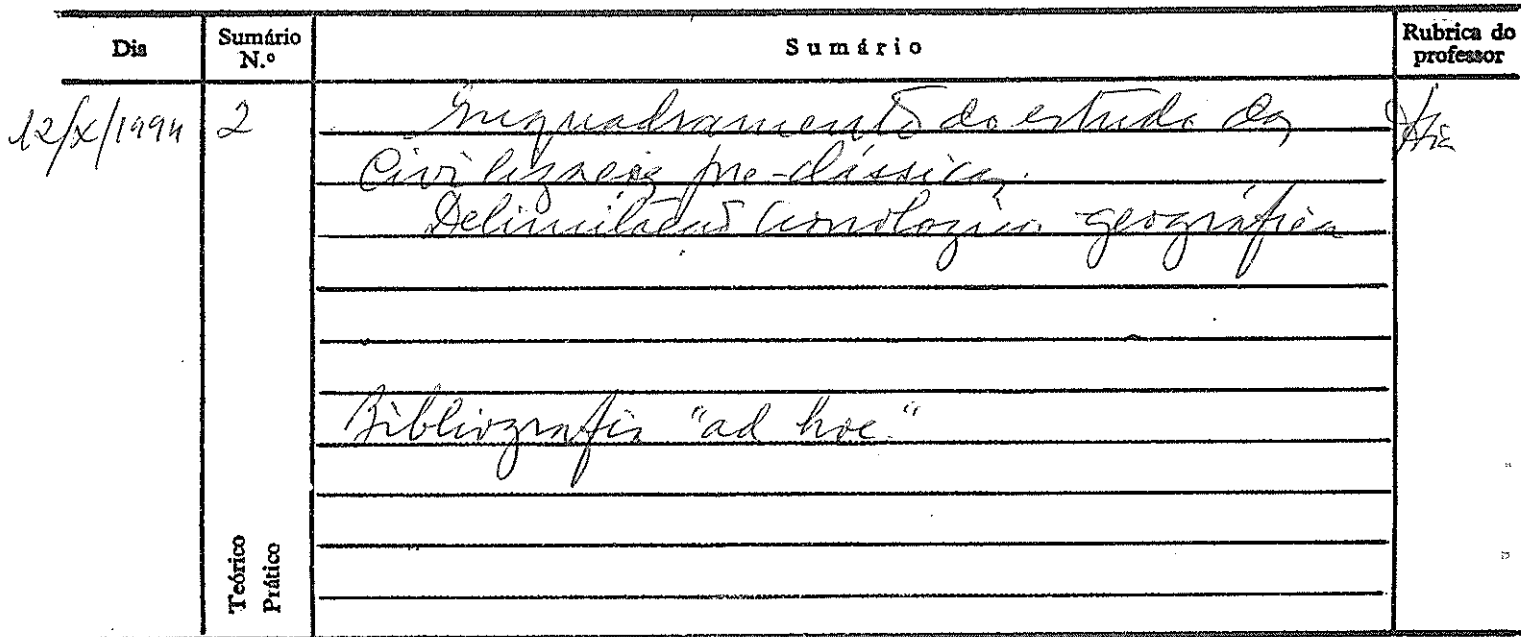 Dia Sumário N.º Sumário Rubrica do professor
12/X/1994 2 Enquadramento do estudo das
Civilizações pré-clássicas.
Delimitação cronológica geográfica
Bibliografia "ad hoc."
Teórico
Prático